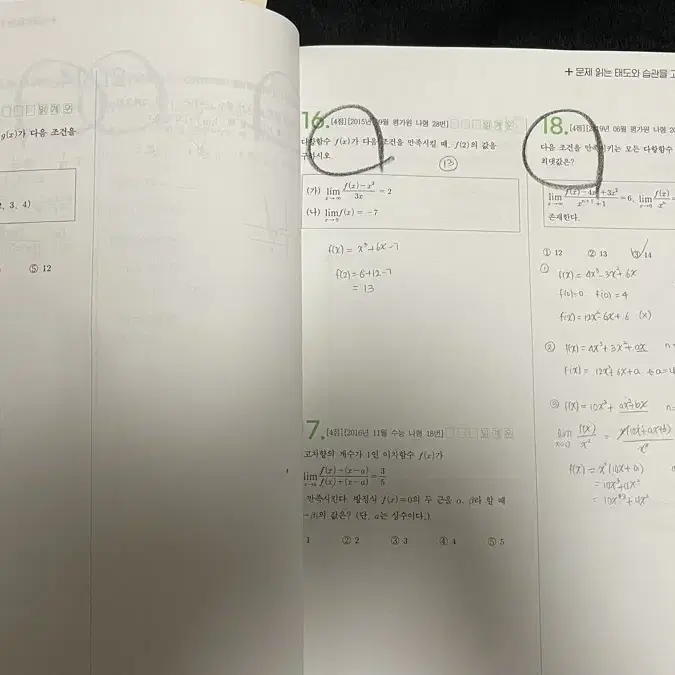 g(x)가 다음 조건을
2, 3, 4)
⑤ 12
16. [4점][2015년 9월 평가원 나형 28번]
다항함수 f(x)가 다음 조건을 만족시킬 때, f(2)의 값을
구하시오.
13
(가) lim x→∞ f(x)-x³ / 3x = 2
(나) lim x→0 f(x) = -7
f(x) = x³+6x-7
f(2) = 6+12-7
= 13
7. [4점][2016년 11월 수능 나형 18번]
고차항의 계수가 1인 이차함수 f(x)가
lim x→a f(x)-(x-a) / f(x)+(x-a) = 3/5
만족시킨다. 방정식 f(x)=0의 두 근을 α, β라 할 때
-β|의 값은? (단, a는 상수이다.)
1 ② 2 ③ 3 ④ 4 ⑤ 5
+ 문제 읽는 태도와 습관을 고
18. [4점][2019년 06월 평가원 나형 20
다음 조건을 만족시키는 모든 다항함수
최댓값은?
lim x→∞ f(x)-4x³+3x² / xⁿ⁺¹+1 = 6, lim x→0 f(x) / xⁿ =
존재한다.
① 12 ② 13 ③ 14
① f(x) = 4x³-3x²+6x
f(0)=0 f(0)=4
f(x)=12x²-6x+6 (x)
② f(x) = 4x³+3x²+ax
f(x) = 12x²+6x+a
③ f(x) = 10x³+ax²+bx
lim x→0 f(x) / x² =
f(x) = x²(10x+a)
= 10x³+ax²